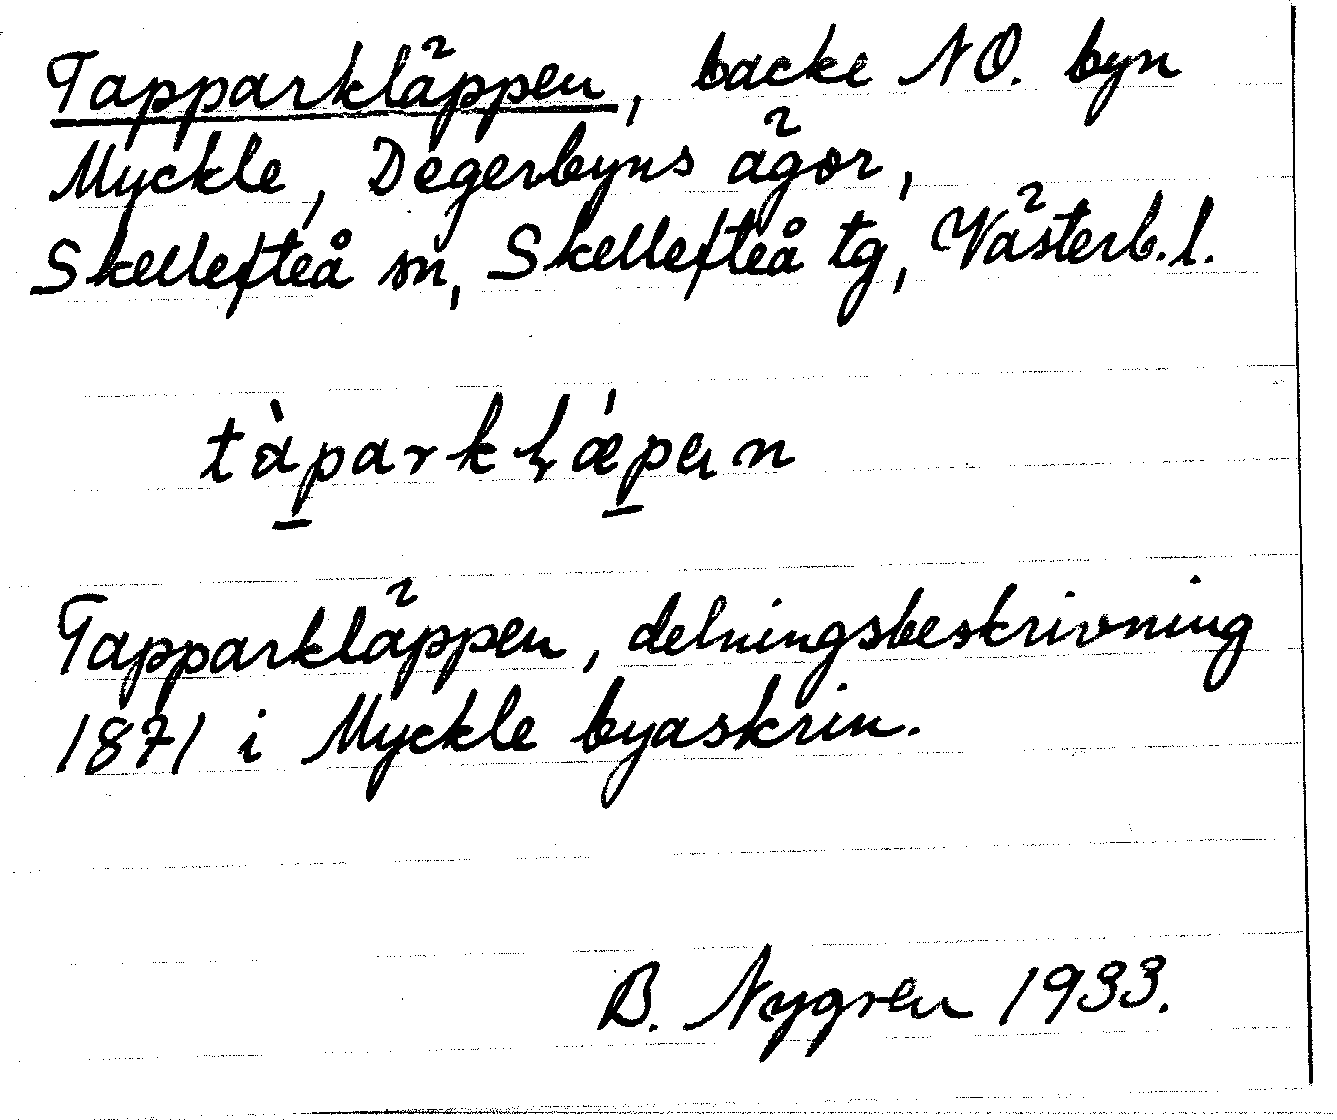 Tapparkläppen, backe NO. byn
Myckle, Degerbyns ägor,
Skellefteå sn, Skellefteå tg, Västerb.l.
Tapparkläppen, delningsbeskrivning
1871 i Myckle byaskrin.
B. Nygren 1933.